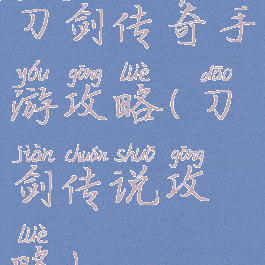 刀剑传奇手
yóu gōng lüè dāo
游攻略(刀
jiàn chuán shuō gōng
剑传说攻
lüè
略)